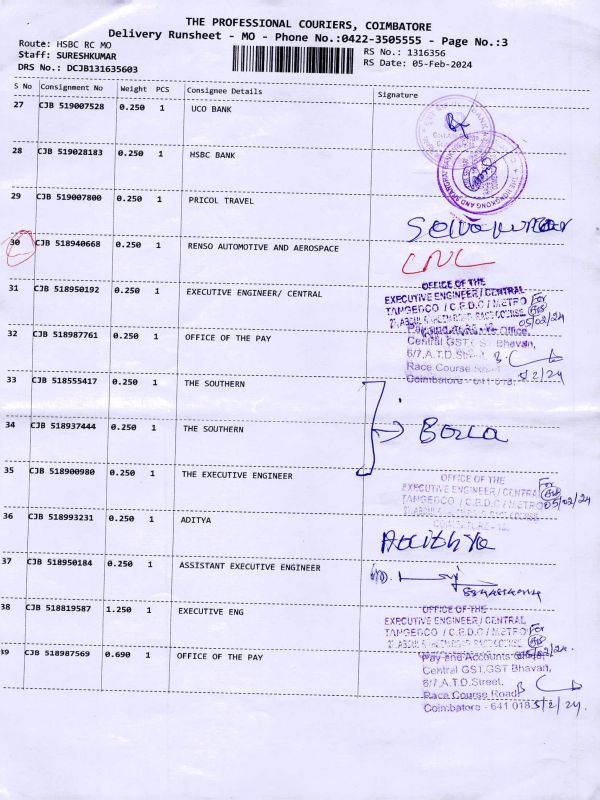 THE PROFESSIONAL COURIERS, COIMBATORE
Delivery Runsheet - MO - Phone No.:0422-3505555 - Page No.:3
Route: HSBC RC MO
Staff: SURESHKUMAR
DRS No.: DCJB131635603
RS No.: 1316356
RS Date: 05-Feb-2024
S No Consignment No Weight PCS Consignee Details Signature
27 CJB 519007528 0.250 1 UCO BANK
28 CJB 519028183 0.250 1 HSBC BANK
29 CJB 519007800 0.250 1 PRICOL TRAVEL
30 CJB 518940668 0.250 1 RENSO AUTOMOTIVE AND AEROSPACE
31 CJB 518950192 0.250 1 EXECUTIVE ENGINEER/ CENTRAL
OFFICE OF THE
EXECUTIVE ENGINEER / CENTRAL
TANGEDCO / C.E.D.C / METRO For
05/02/24
32 CJB 518987761 0.250 1 OFFICE OF THE PAY
Central GST, GST Bhavan,
6/7, A.T.D. Street,
Race Course Road
Coimbatore - 641 018. 5/2/24
33 CJB 518555417 0.250 1 THE SOUTHERN
34 CJB 518937444 0.250 1 THE SOUTHERN
35 CJB 518900980 0.250 1 THE EXECUTIVE ENGINEER
OFFICE OF THE
EXECUTIVE ENGINEER / CENTRAL For
TANGEDCO / C.E.D.C / METRO 05/02/24
36 CJB 518993231 0.250 1 ADITYA
37 CJB 518950184 0.250 1 ASSISTANT EXECUTIVE ENGINEER
38 CJB 518819587 1.250 1 EXECUTIVE ENG
OFFICE OF THE
EXECUTIVE ENGINEER / CENTRAL
TANGEDCO / C.E.D.C / METRO For
39 CJB 518987569 0.690 1 OFFICE OF THE PAY
Pay and Accounts
Central GST, GST Bhavan,
6/7, A.T.D. Street,
Race Course Road
Coimbatore - 641 018. 5/2/24.